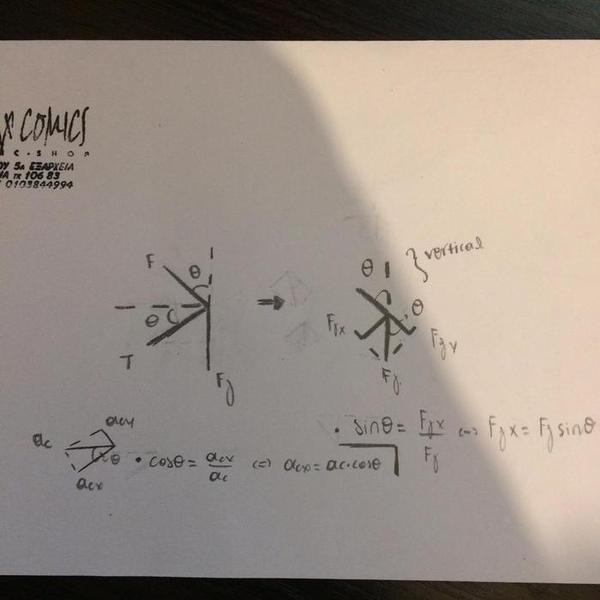 X COMICS
C · SHOP
ΟΥ 5Α ΕΞΑΡΧΕΙΑ
ΙΑ ΤΚ 106 83
0103844994
vertical
F θ
θ θ
θ
T
Fg
Fgx
Fgy
Fg
acy
ac
θ
acx
· cosθ = acx/ac ⇔ acx = ac·cosθ
· sinθ = Fgx/Fg ⇔ Fgx = Fg sinθ